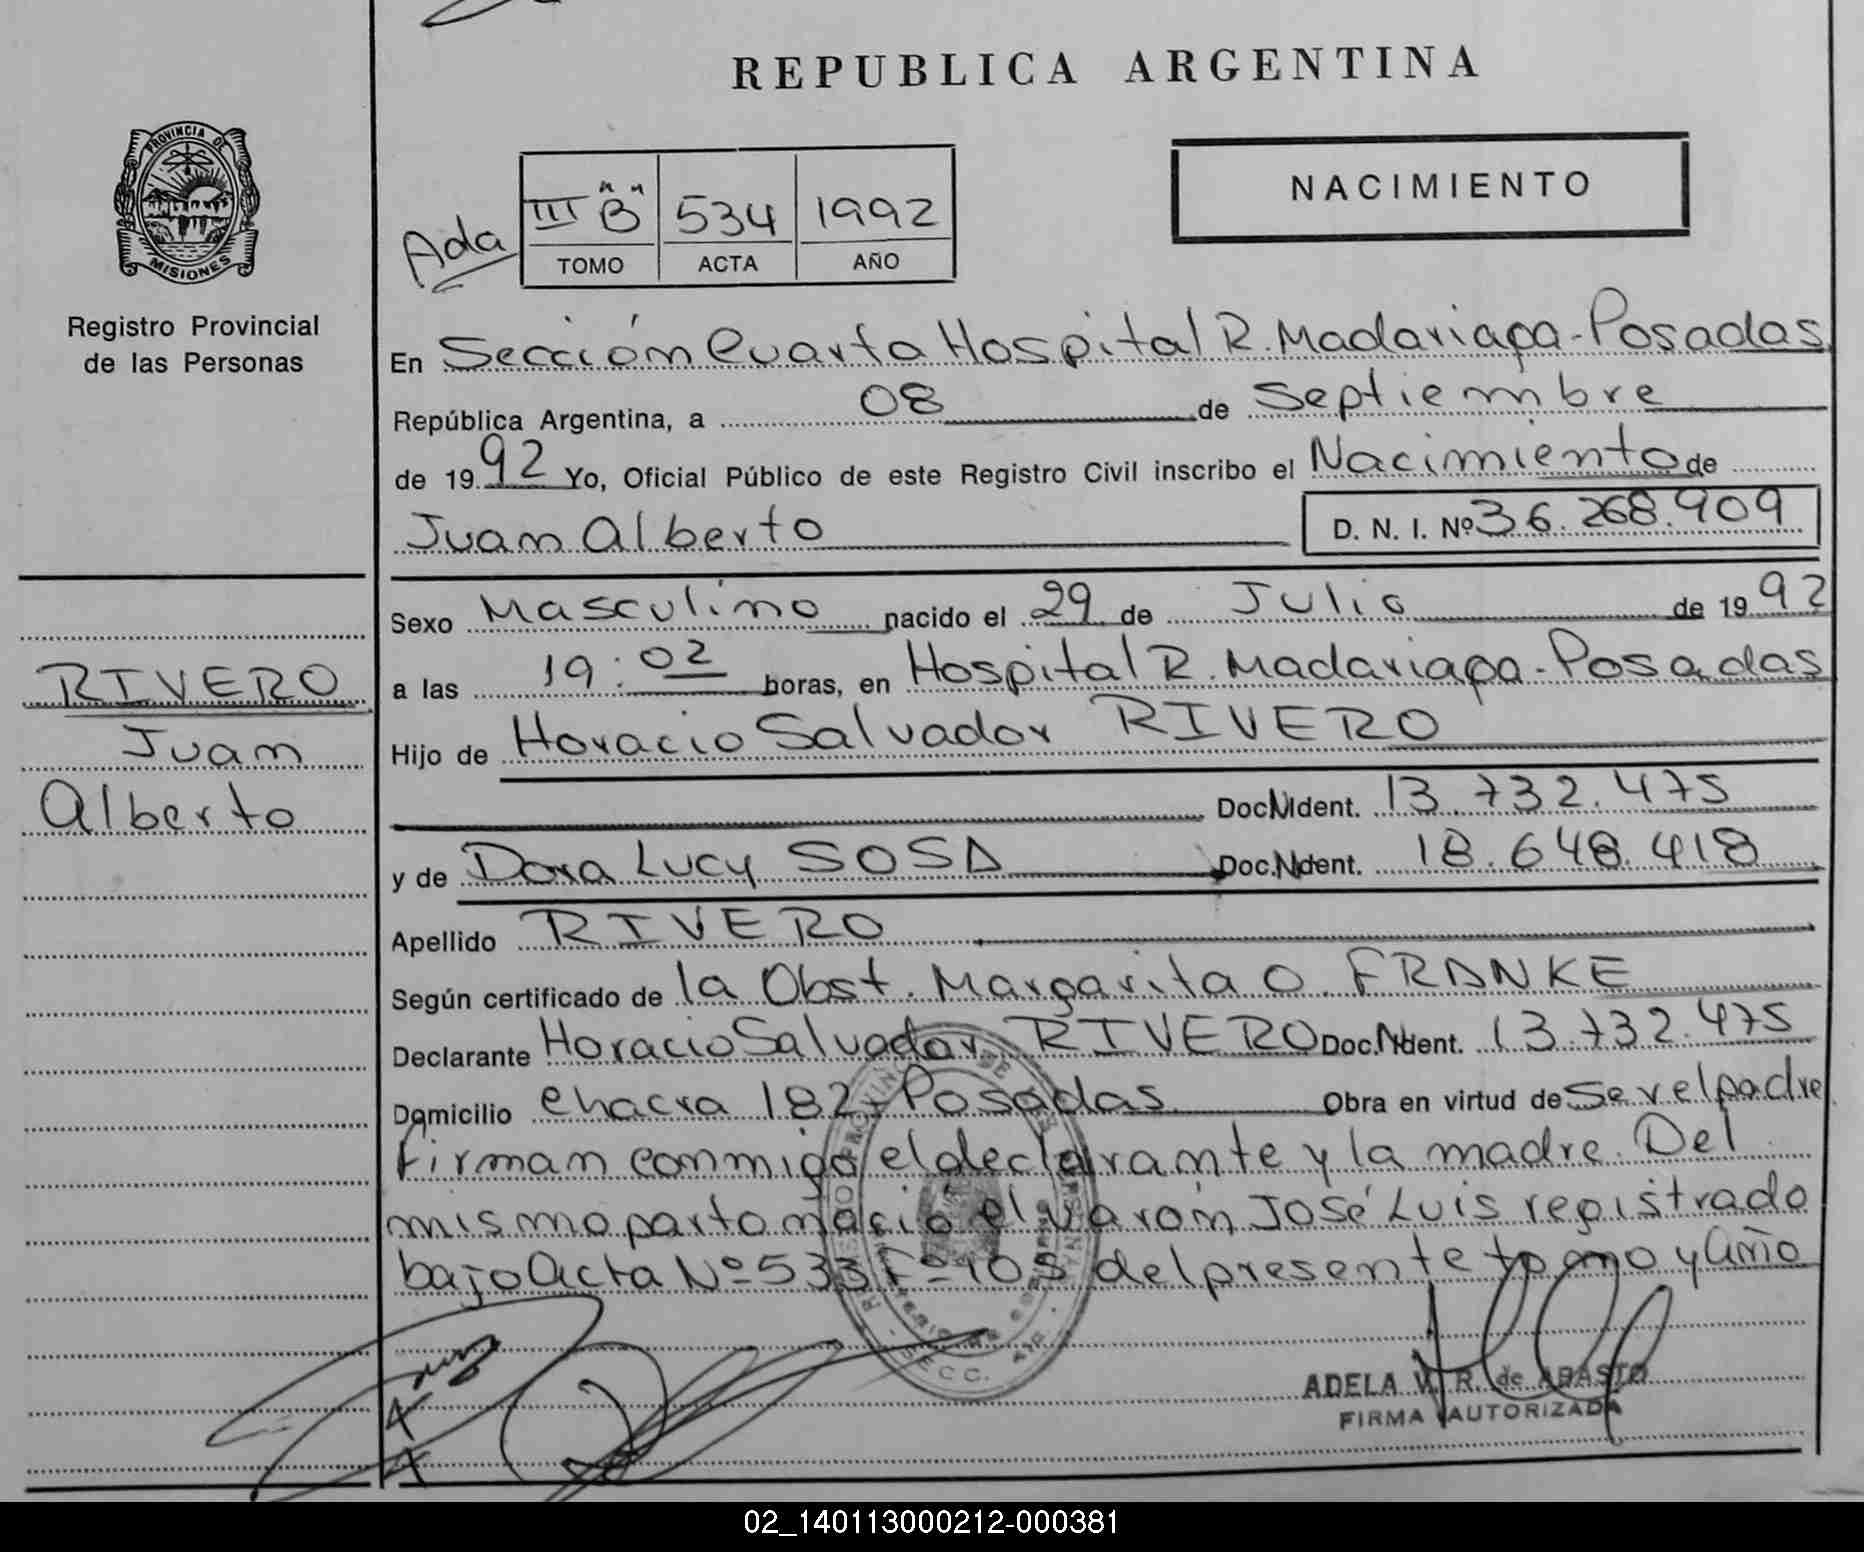 REPUBLICA ARGENTINA
PROVINCIA DE
MISIONES
Registro Provincial
de las Personas
NACIMIENTO
Ada
III "B" 534 1992
TOMO ACTA AÑO
En Sección Cuarta Hospital R. Madariaga - Posadas
República Argentina, a 08 de Septiembre
de 1992 Yo, Oficial Público de este Registro Civil inscribo el Nacimiento de
Juan Alberto D. N. I. Nº 36.268.909
Sexo Masculino nacido el 29 de Julio de 1992
a las 19:02 horas, en Hospital R. Madariaga - Posadas
Hijo de Horacio Salvador RIVERO
Doc.NIdent. 13.732.475
y de Dora Lucy SOSA Doc.NIdent. 18.648.418
Apellido RIVERO
Según certificado de la Obst. Margarita O. FRANKE
Declarante Horacio Salvador RIVERO Doc.NIdent. 13.732.475
Domicilio Chacra 182 - Posadas Obra en virtud de ser el padre
Firman conmigo el declarante y la madre. Del
mismo parto nació el varón José Luis registrado
bajo Acta Nº 533 Fº 105 del presente tomo y año
RIVERO
Juan
Alberto
SECC.
ADELA V. R. de ABASTO
FIRMA AUTORIZADA
02_140113000212-000381